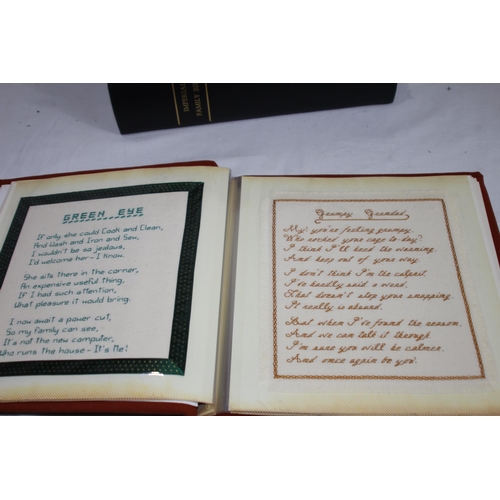 IMPERIAL
FAMILY BI
GREEN EYE
If only she could Cook and Clean,
And Wash and Iron and Sew,
I wouldn't be so jealous,
I'd welcome her - I know.
She sits there in the corner,
An expensive useful thing,
If I had such attention,
What pleasure it would bring.
I now await a power cut,
So my family can see,
It's not the new computer,
Who runs the house - It's Me!
Grumpy Grandad
My! you're feeling grumpy.
Who rocked your cage to-day?
I think I'll heed the warning,
And keep out of your way.
I don't think I'm the culprit,
I've hardly said a word,
That doesn't stop your snapping,
It really is absurd.
But when I've found the reason,
And we can talk it through
I'm sure you will be calmer,
And once again be you!